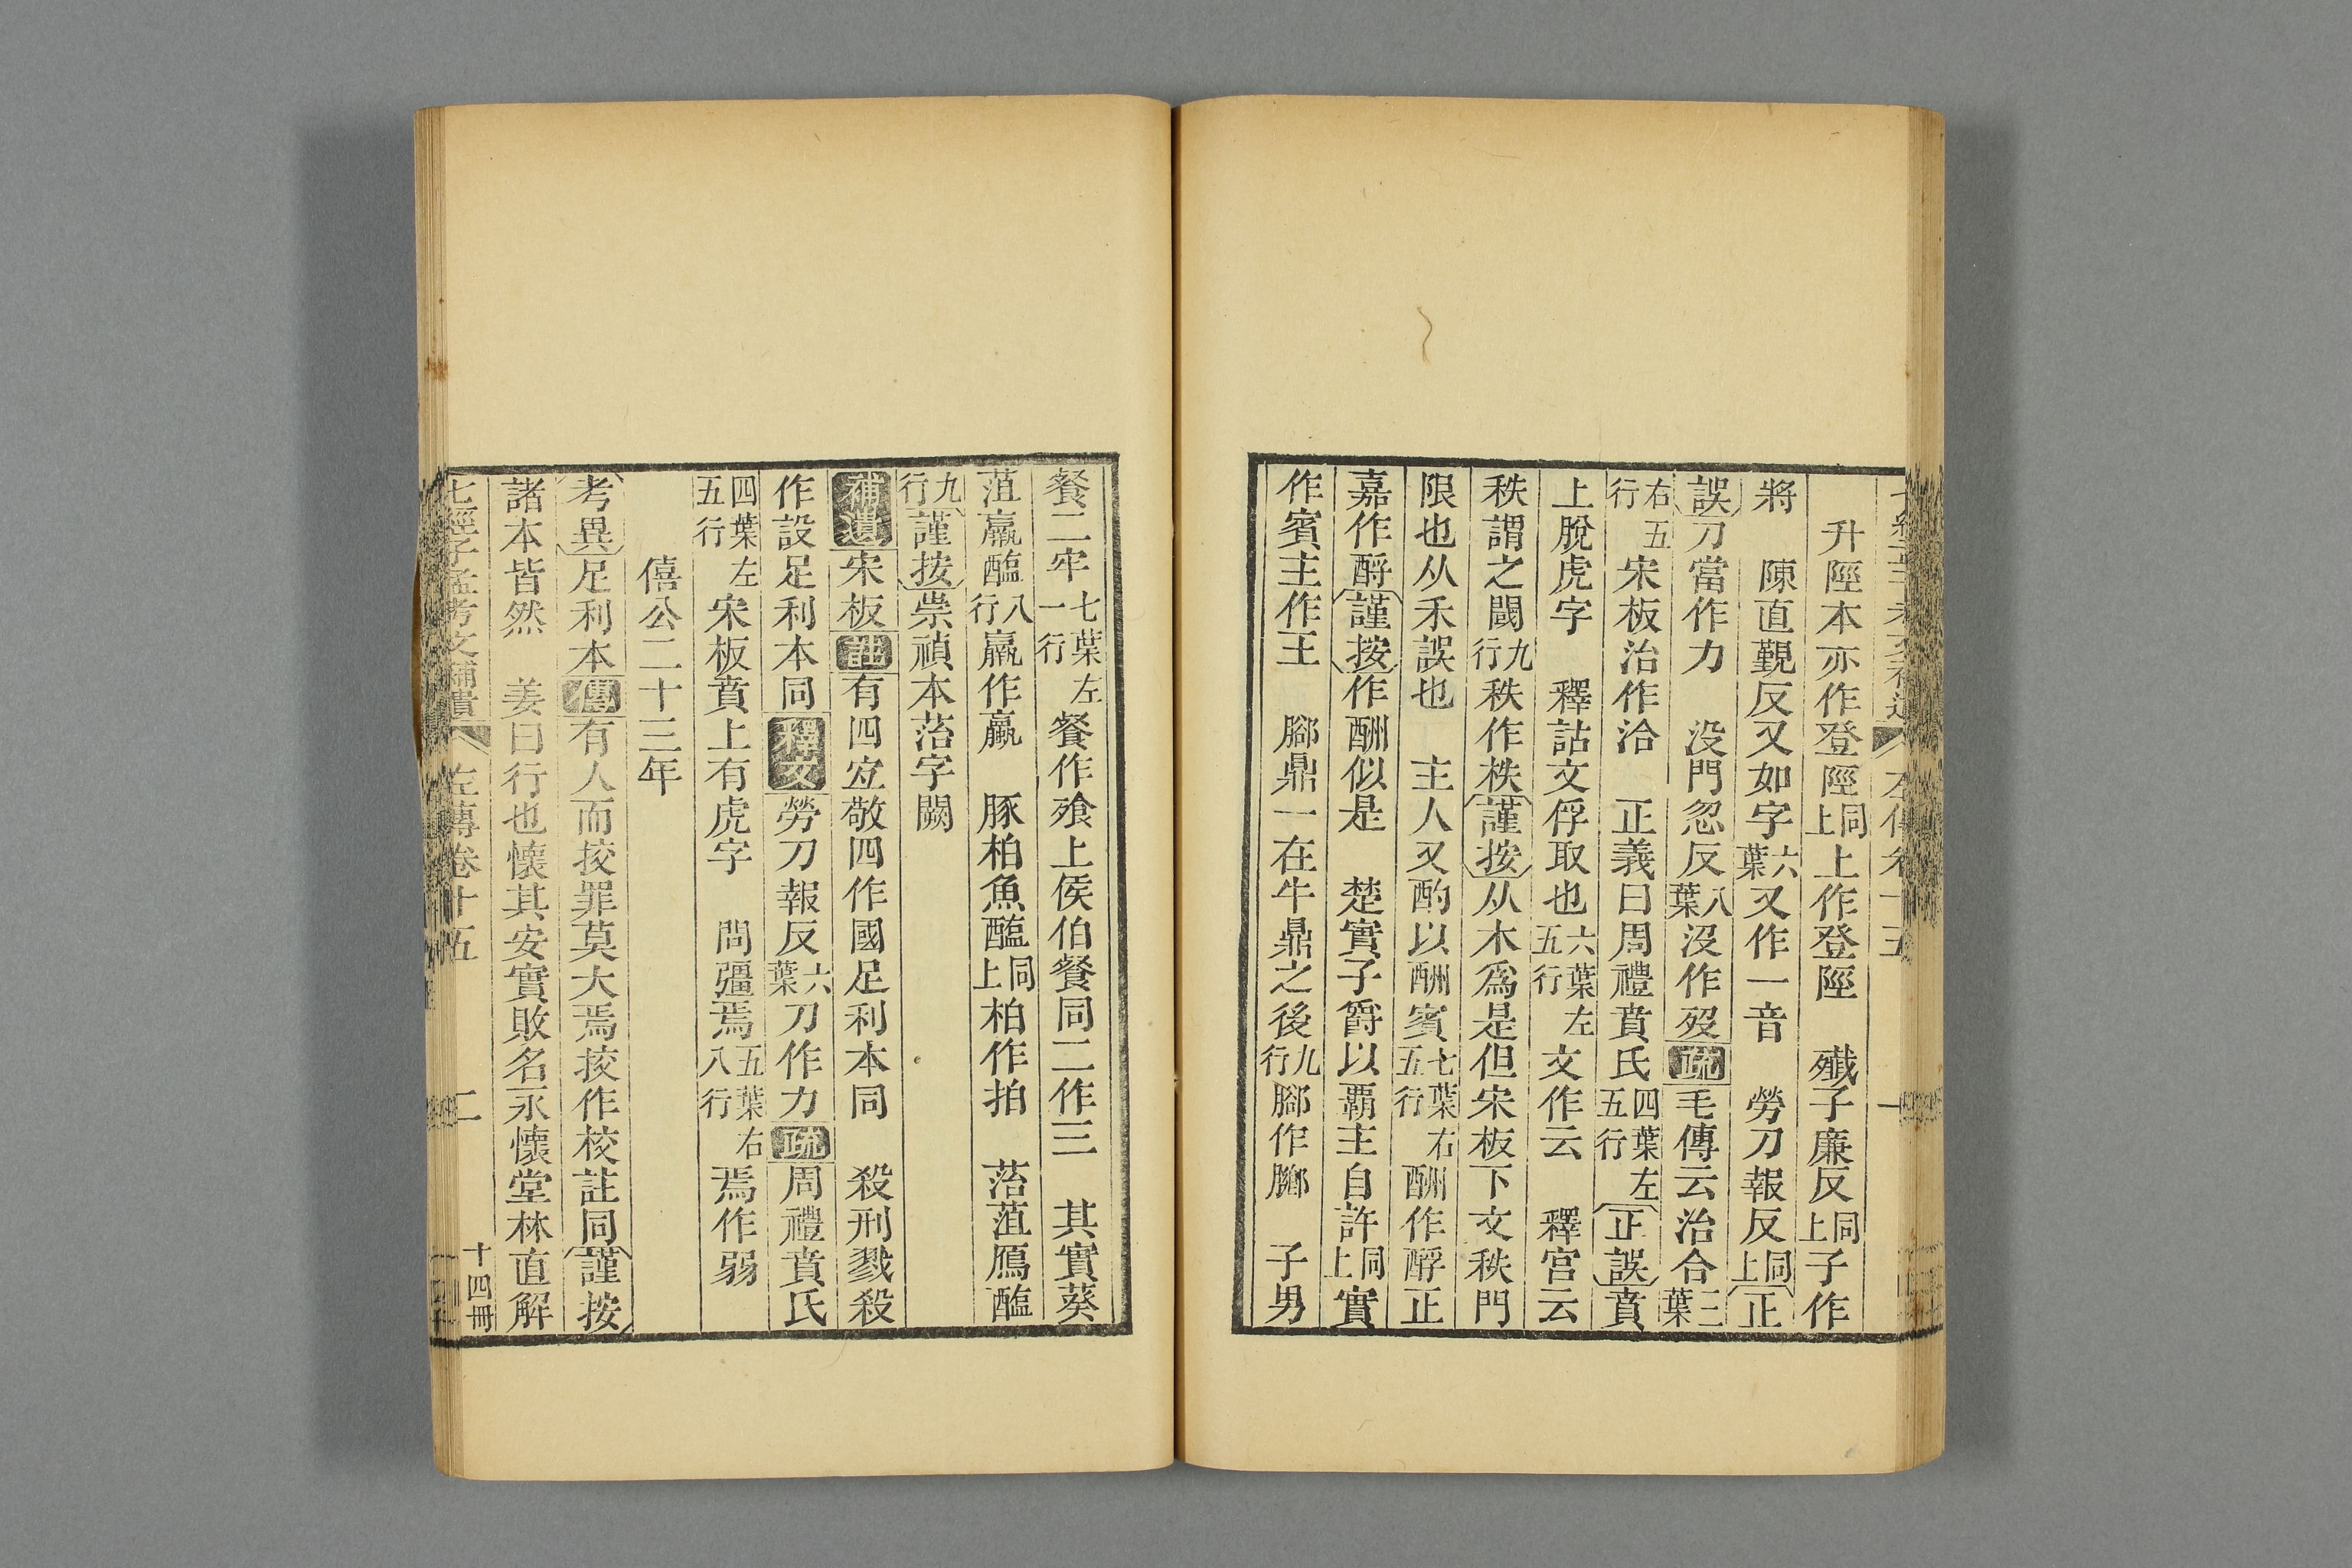 升陘本亦作登陘同上上作登陘　殲子廉反同上子作
將　陳直覲反又如字六葉又作一音　勞刀報反同上正
誤刀當作力　没門忽反八葉没作歿疏毛傳云治合三葉
右五行宋板治作洽　正義曰周禮賁氏四葉左五行正誤賁
上脫虎字　釋詁文俘取也六葉左五行文作云　釋宮云
秩謂之閾九行秩作柣謹按从木爲是但宋板下文秩門
限也从禾誤也　主人又酌以酬賓七葉右五行酬作酹正
嘉作酹謹按作酬似是　楚實子爵以霸主自許同上實
作賓主作王　膷鼎一在牛鼎之後九行膷作膷　子男
餐二牢七葉左一行餐作飧上侯伯餐同二作三　其實葵
菹蠃醢八行蠃作蠃　豚柏魚醢同上柏作拍　菭菹鴈醢
九行謹按崇禎本菭字闕
補遺宋板註有四宜敬四作國足利本同　殺刑戮殺
作設足利本同釋文勞刀報反六葉刀作力疏周禮賁氏
四葉左五行宋板賁上有虎字　問彊焉五葉右八行焉作弱
僖公二十三年
考異足利本傳有人而挍罪莫大焉挍作校註同謹按
諸本皆然　姜曰行也懷其安實敗名永懷堂林直解
七經孟子考文補遺　左傳卷十五　二　十四冊